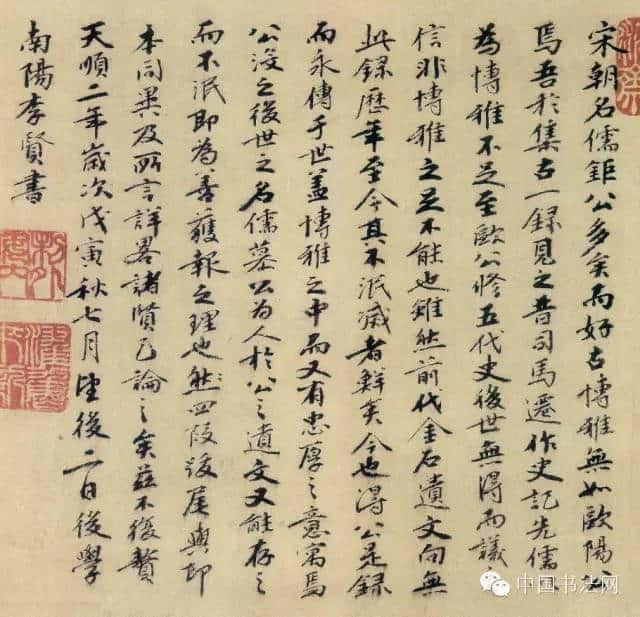 宋朝名儒鉅公多矣而好古博雅無如歐陽公
焉吾於集古一錄見之昔司馬遷作史記先儒以
為博雅不足至歐公修五代史後世無得而議
信非博雅之足不能也雖然前代金石遺文向無
此錄歷年至今其不泯滅者鮮矣今也得公是錄
而永傳于世蓋博雅之中而又有忠厚之意寓焉
公沒之後世之名儒慕公為人於公之遺文又能存之
而不泯即為善獲報之理也然四段後尾與印
本同異及所言詳畧諸賢已論之矣茲不復贅
天順二年歲次戊寅秋七月望後二日後學
南陽李賢書
中国书法网